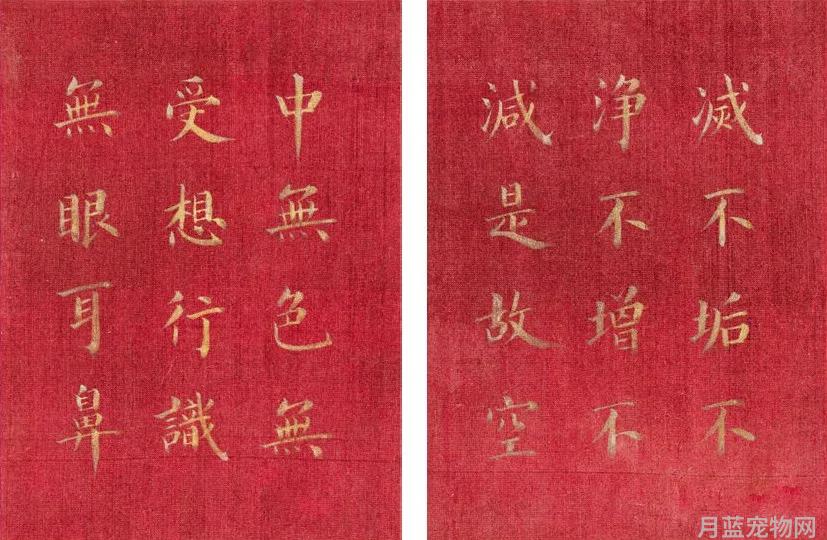 滅不垢不
浄不增不
減是故空
中無色無
受想行識
無眼耳鼻
月蓝宠物网